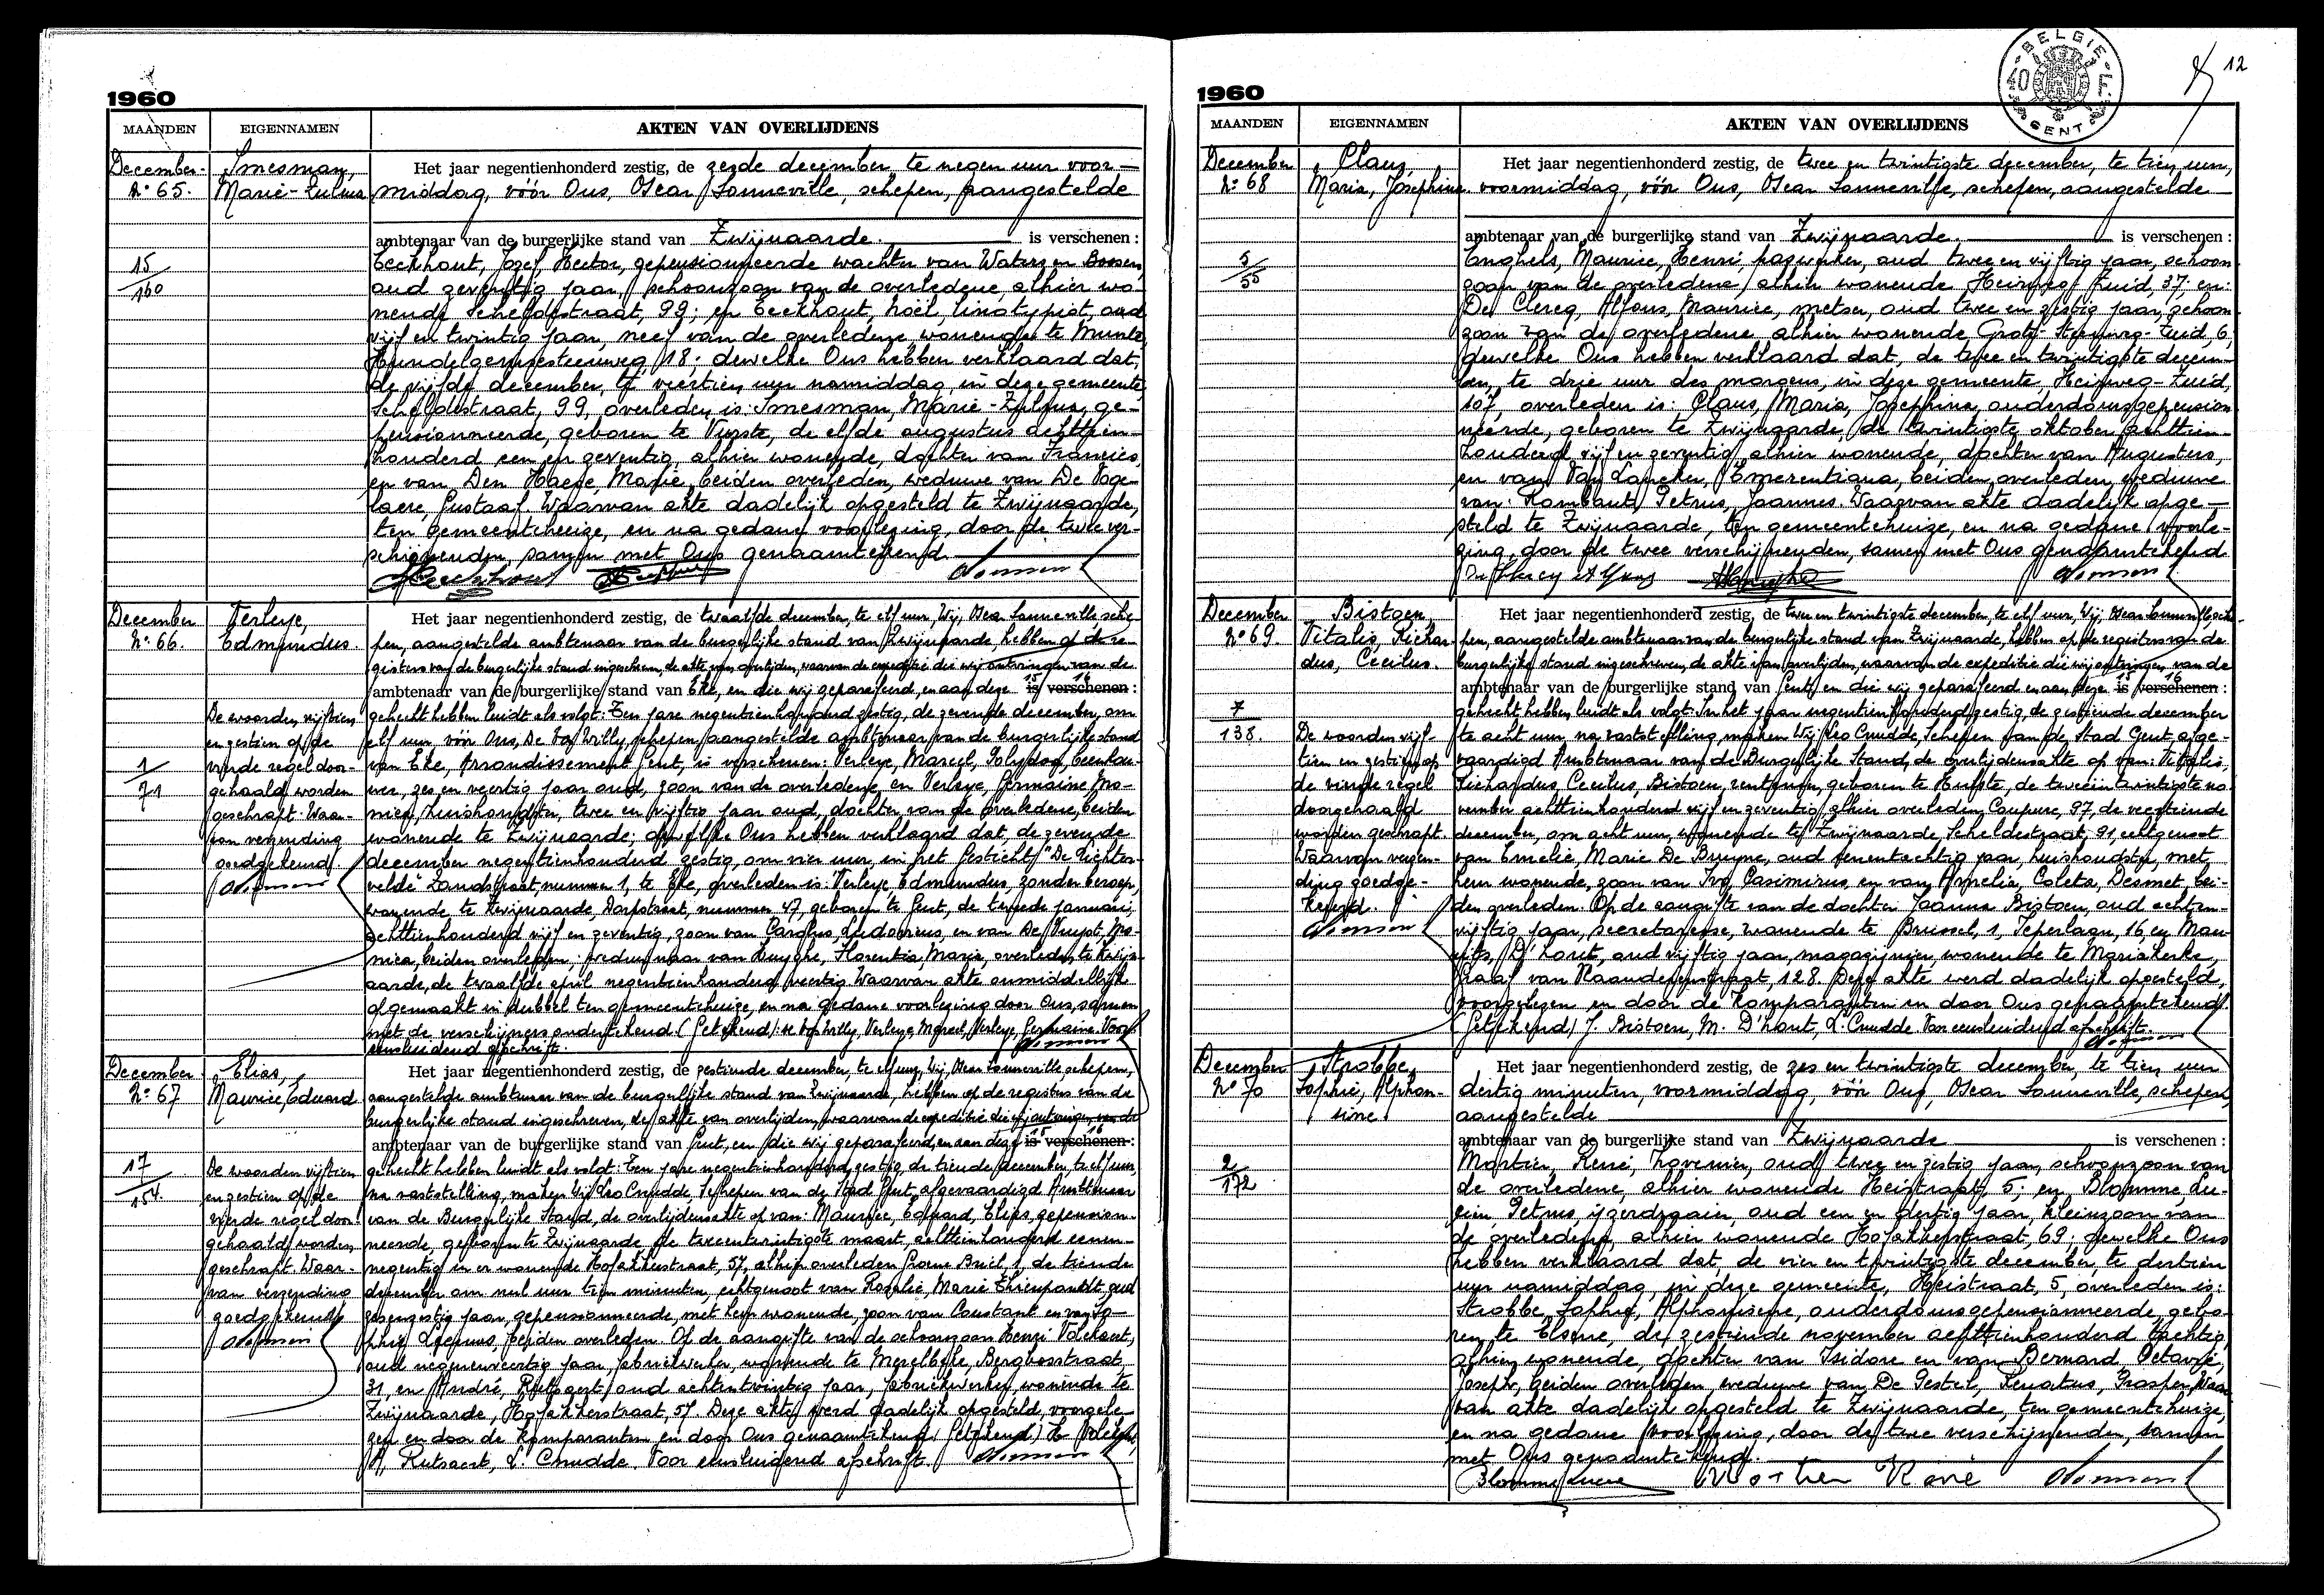 1960
MAANDEN EIGENNAMEN AKTEN VAN OVERLIJDENS
December
N° 65.
Smesman,
Marie-Zulma
15
160
Het jaar negentienhonderd zestig, de zesde december, te negen uur voor-
middag, vóór Ons, Oscar Sonneville, schepen, aangestelde
ambtenaar van de burgerlijke stand van Zwijnaarde. is verschenen:
Eeckhout, Jozef, Hector, gepensionneerde wachter van Waters en Bossen,
oud zeventig jaar, schoonzoon van de overledene, alhier wo-
nende Scheldestraat, 99; en Eeckhout, Noël, linotypist, oud
vijf en twintig jaar, neef van de overledene, wonende te Munte,
Hundelgemsesteenweg, 18; dewelke Ons hebben verklaard dat,
de vijfde december, te veertien uur namiddag, in deze gemeente,
Scheldestraat, 99, overleden is: Smesman, Marie-Zulma, ge-
pensionneerde, geboren te Vurste, de elfde augustus achttien-
honderd een en zeventig, alhier wonende, dochter van Francies,
en van Den Haese, Marie, beiden overleden, weduwe van De Voge-
laere, Gustaaf. Waarvan akte dadelijk opgesteld te Zwijnaarde,
ten gemeentehuize, en na gedane voorlezing, door de twee ver-
schijnenden, samen met Ons genaamtekend.
December
N° 66.
Verleye,
Edmundus.
1
71
De woorden vijftien
en zestien op de
vierde regel door-
gehaald worden
geschrapt. Waar-
van verzending
goedgekeurd.
Het jaar negentienhonderd zestig, de twaalfde december, te elf uur, Wij, Oscar Sonneville, sche-
pen, aangestelde ambtenaar van de burgerlijke stand van Zwijnaarde, hebben op de re-
gisters van de burgerlijke stand ingeschreven, de akte van overlijden, waarvan de expeditie die wij ontvingen van de
ambtenaar van de burgerlijke stand van Eke, en die wij geparafeerd, en aan deze is verschenen: 15 16
gehecht hebben luidt als volgt: Ten jare negentienhonderd zestig, de zevende december, om
elf uur, vóór Ons, De Vos Willy, schepen, aangestelde ambtenaar van de burgerlijke stand
van Eke, Arrondissement Gent, is verschenen: Verleye, Marcel, Polydoor, beenhou-
wer, zes en veertig jaar oud, zoon van de overledene, en Verleye, Germaine, Mo-
nica, huishoudster, twee en vijftig jaar oud, dochter van de overledene, beiden
wonende te Zwijnaarde; dewelke Ons hebben verklaard dat, de zevende
december negentienhonderd zestig, om vier uur, in het Gesticht "De Lichter-
velde" Zandstraat, nummer 1, te Eke, overleden is: Verleye, Edmundus, zonder beroep,
wonende te Zwijnaarde, Dorpstraat, nummer 47, geboren te Gent, de tweede januari,
achttienhonderd vijf en zeventig, zoon van Carolus, Ludovicus, en van De Vuyst, Mo-
nica, beiden overleden; weduwnaar van Huyghe, Florentia, Maria, overleden te Zwijn-
aarde, de twaalfde april negentienhonderd veertig. Waarvan akte onmiddellijk
opgemaakt in dubbel ten gemeentehuize, en na gedane voorlezing door Ons, samen
met de verschijners ondertekend. (Getekend): De Vos Willy, Verleye Marcel, Verleye, Germaine. Voor
eensluidend afschrift.
December
N° 67
Elias,
Maurice, Eduard
17
154.
De woorden vijftien
en zestien op de
vierde regel door-
gehaald worden
geschrapt. Waar-
van verzending
goedgekeurd
Het jaar negentienhonderd zestig, de zestiende december, te elf uur, Wij, Oscar Sonneville, schepen,
aangestelde ambtenaar van de burgerlijke stand van Zwijnaarde, hebben op de registers van de
burgerlijke stand ingeschreven, de akte van overlijden, waarvan de expeditie die wij ontvingen van de
ambtenaar van de burgerlijke stand van Gent, en die wij geparafeerd, en aan deze is verschenen: 15 16
gehecht hebben luidt als volgt: Ten jare negentienhonderd zestig, de tiende december, te elf uur,
na vaststelling, maken Wij Leo Cnudde, Schepen van de Stad Gent, afgevaardigd Ambtenaar
van de Burgerlijke Stand, de overlijdensakte op van: Maurice, Eduard, Elias, gepension-
neerde, geboren te Zwijnaarde de tweeentwintigste maart, achttienhonderd eenen-
negentig en er wonende Hofakkerstraat, 57, alhier overleden, Groene Briel, 1, de tiende
december om nul uur tien minuten, echtgenoot van Rosalie, Marie Thienpondt, oud
zesenzestig jaar, gepensionneerde, met hem wonende, zoon van Constant en van So-
phie beiden overleden. Op de aangifte van de schoonzoon Henri Volckaert,
oud negenenveertig jaar, fabriekwerker, wonende te Merelbeke, Bergbosstraat,
31, en André, Rutsaert, oud achtentwintig jaar, fabriekwerker, wonende te
Zwijnaarde, Hofakkerstraat, 57. Deze akte werd dadelijk opgesteld, voorgele-
zen en door de komparanten en door Ons genaamtekend. (Getekend) H.
A. Rutsaert, L. Cnudde. Voor eensluidend afschrift.
BELGIE
40 F.
GENT
12
1960
MAANDEN EIGENNAMEN AKTEN VAN OVERLIJDENS
December
N° 68
Claus,
Maria, Josephina
5
55
Het jaar negentienhonderd zestig, de twee en twintigste december, te tien uur,
voormiddag, vóór Ons, Oscar Sonneville, schepen, aangestelde
ambtenaar van de burgerlijke stand van Zwijnaarde. is verschenen:
Enghels, Maurice, Henri, gaswerker, oud twee en vijftig jaar, schoon-
zoon van de overledene, alhier wonende Heirweg-Zuid, 37; en:
De Clercq, Alfons, Maurice, metser, oud twee en zestig jaar, schoon-
zoon van de overledene, alhier wonende Grote-Steenweg-Zuid, 6;
dewelke Ons hebben verklaard dat, de twee en twintigste decem-
ber, te drie uur des morgens, in deze gemeente, Heirweg-Zuid,
107, overleden is: Claus, Maria, Josephina, ouderdomsgepension-
neerde, geboren te Zwijnaarde, de twintigste oktober achttien-
honderd vijf en zeventig, alhier wonende, dochter van Augustus,
en van Van Lancker, Emerentiana, beiden overleden, weduwe
van: Rombaut, Petrus, Joannes. Waarvan akte dadelijk opge-
steld te Zwijnaarde, ten gemeentehuize, en na gedane voorle-
zing, door de twee verschijnenden, samen met Ons genaamtekend
December
N° 69.
Bistoen,
Vitalis, Richar-
dus, Cecilus.
7
138.
De woorden vijf-
tien en zestien op
de vierde regel
doorgehaald
worden geschrapt.
Waarvan verzen-
ding goedge-
keurd.
Het jaar negentienhonderd zestig, de twee en twintigste december, te elf uur, Wij, Oscar Sonneville, sche-
pen, aangestelde ambtenaar van de burgerlijke stand van Zwijnaarde, hebben op de registers van de
burgerlijke stand ingeschreven, de akte van overlijden, waarvan de expeditie die wij ontvingen van de
ambtenaar van de burgerlijke stand van Gent, en die wij geparafeerd en aan deze is verschenen: 15 16
gehecht hebben luidt als volgt: In het jaar negentienhonderd zestig, de zestiende december
te acht uur, na vaststelling, maken Wij Leo Cnudde, Schepen van de Stad Gent, afge-
vaardigd Ambtenaar van de Burgerlijke Stand, de overlijdensakte op van: Vitalis,
Richardus, Cecilus, Bistoen, rentenier, geboren te Hulste, de tweeëntwintigste no-
vember achttienhonderd vijf en zeventig, alhier overleden, Coupure, 97, de veertiende
december, om acht uur, wonende te Zwijnaarde, Scheldestraat, 91, echtgenoot
van Emelie, Marie De Bruyne, oud zevenentachtig jaar, huishoudster, met
hem wonende, zoon van Ivo, Casimirus, en van Amelia, Coleta, Desmet, bei-
den overleden. Op de aangifte van de dochter Joanna Bistoen, oud achten-
vijftig jaar, secretaresse, wonende te Brussel, 1, Ieperlaan, 16, en Mau-
rits, D'hont, oud vijftig jaar, magazijnier, wonende te Mariakerke,
Graaf van Vlaanderenstraat, 128. Deze akte werd dadelijk opgesteld,
voorgelezen en door de komparanten en door Ons genaamtekend.
(Getekend) J. Bistoen, M. D'hont, L. Cnudde. Voor eensluidend afschrift.
December
N° 70
Strobbe,
Sophie, Alphon-
sine
2
172
Het jaar negentienhonderd zestig, de zes en twintigste december, te tien uur
dertig minuten, voormiddag, vóór Ons, Oscar Sonneville, schepen,
aangestelde
ambtenaar van de burgerlijke stand van Zwijnaarde is verschenen:
Martier, René, hovenier, oud twee en zestig jaar, schoonzoon van
de overledene, alhier wonende Heistraat, 5; en Blomme, Lu-
cien, Petrus, ijzerdraaier, oud een en dertig jaar, kleinzoon van
de overledene, alhier wonende Hofakkerstraat, 69; dewelke Ons
hebben verklaard dat, de vier en twintigste december, te dertien
uur namiddag, in deze gemeente, Heistraat, 5, overleden is:
Strobbe, Sophie, Alphonsine, ouderdomsgepensionneerde, gebo-
ren te Elsene, de zestiende november achttienhonderd tachtig,
alhier wonende, dochter van Isidore en van Bernard Octavie,
Joseph, beiden overleden, weduwe van De Gestel, Renatus, Prosper. Waar-
van akte dadelijk opgesteld te Zwijnaarde, ten gemeentehuize,
en na gedane voorlezing, door de twee verschijnenden, samen
met Ons genaamtekend.
Blomme Lucien Martier René